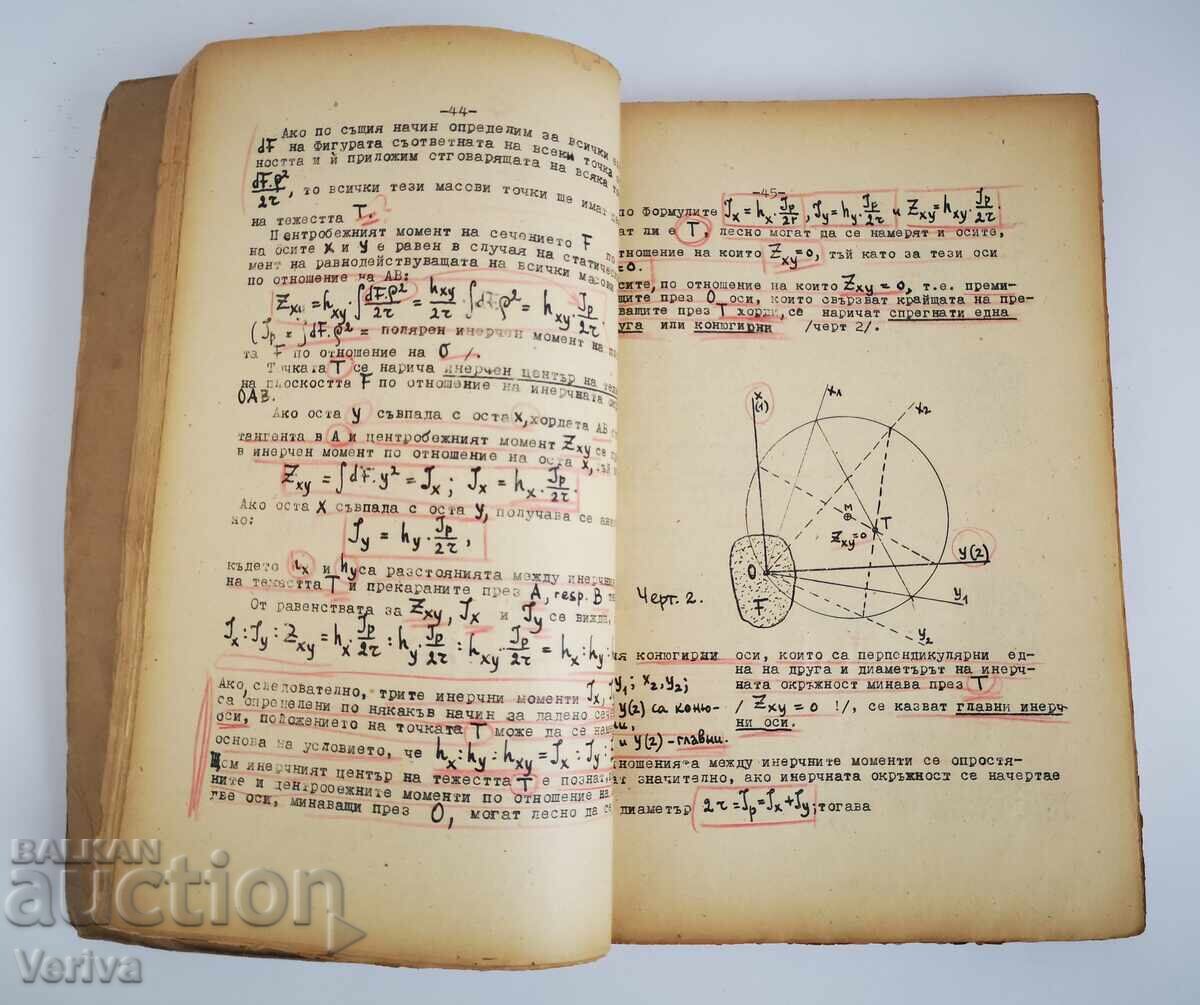 -44-
Ако по същия начин определим за всички
dF на фигурата съответната на всеки точка
ността и ѝ приложим отговарящата на всяка
dF.ρ²/2r, то всички тези масови точки ще имат
на тежестта T.
Центробежният момент на сечението F
на осите X и Y е равен в случая на
мент на равнодействуващата на всички масови
по отношение на АВ:
Zxy = hxy·∫dF·ρ²/2r = hxy/2r·∫dF·ρ² = hxy·Jp/2r.
(Jp = ∫dF·ρ² = полярен инерчен момент на
та F по отношение на O/.
Точката T се нарича инерчен център на
на плоскостта F по отношение на инерчната
OAB.
Ако оста Y съвпада с оста X, хордата AB
тангента в A и центробежният момент Zxy се
в инерчен момент по отношение на оста X,
Zxy = ∫dF·y² = Jx; Jx = hx·Jp/2r.
Ако оста X съвпада с оста Y, получава се
но:
Jy = hy·Jp/2r,
където hx и hy са разстоянията между
на тежестта T и прекараните през A, resp. B
От равенствата за Zxy, Jx и Jy се вижда,
Jx:Jy:Zxy = hx·Jp/2r : hy·Jp/2r : hxy·Jp/2r = hx:hy:
Ако, следователно, трите инерчни моменти Jx,
са определени по някакъв начин за дадено
оси, положението на точката T може да се
основа на условието, че hx:hy:hxy = Jx:Jy:
Щом инерчният център на тежестта T е познат,
ните и центробежните моменти по отношение на
две оси, минаващи през O, могат лесно да се
-45-
по формулите Jx=hx·Jp/2r, Jy=hy·Jp/2r и Zxy=hxy·Jp/2r.
ат ли е T, лесно могат да се намерят и осите,
тношение на които Zxy=0, тъй като за тези оси
=0.
сите, по отношение на който Zxy=0, т.е. преми-
щите през O оси, които свързват крайщата на пре-
ващите през T хорди, се наричат спрегнати една
уга или конюгирни /черт 2/.
x
(1)
x1
x2
M
T
Zxy=0
O
y(2)
F
y1
y2
Черт. 2.
ия конюгирни оси, които са перпендикулярни ед-
на на друга и диаметърът на инерч-
ната окръжност минава през T
/ Zxy=0 !/, се казват главни инерч-
ни оси.
y1; x2, y2;
y(2) са коню-
и y(2)-главни.
ношенията между инерчните моменти се опростя-
ат значително, ако инерчната окръжност се начертае
диаметър 2r=Jp=Jx+Jy; тогава
BALKAN
auction
Veriva